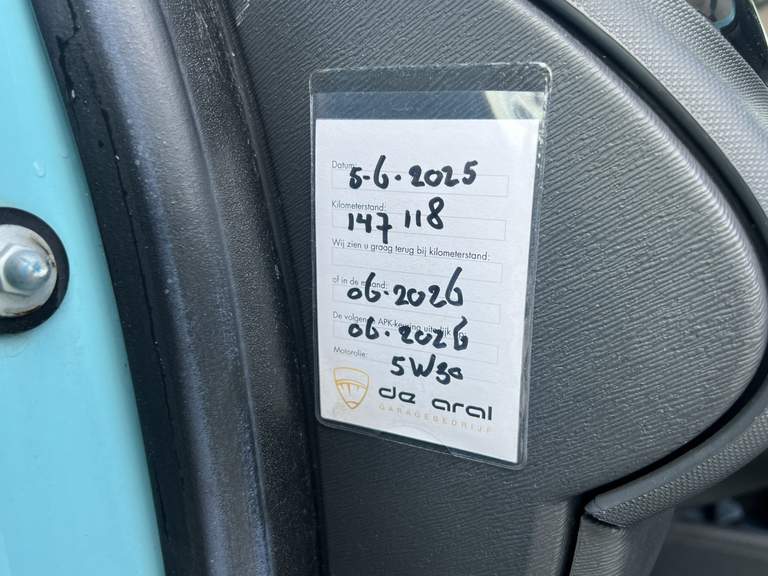 Datum:
5-6.2025
Kilometerstand:
147 118
Wij zien u graag terug bij kilometerstand:
of in de maand:
06.2026
De volgende APK-keuring uiterlijk op:
06.2026
Motorolie:
5W30
de aral
GARAGEBEDRIJF